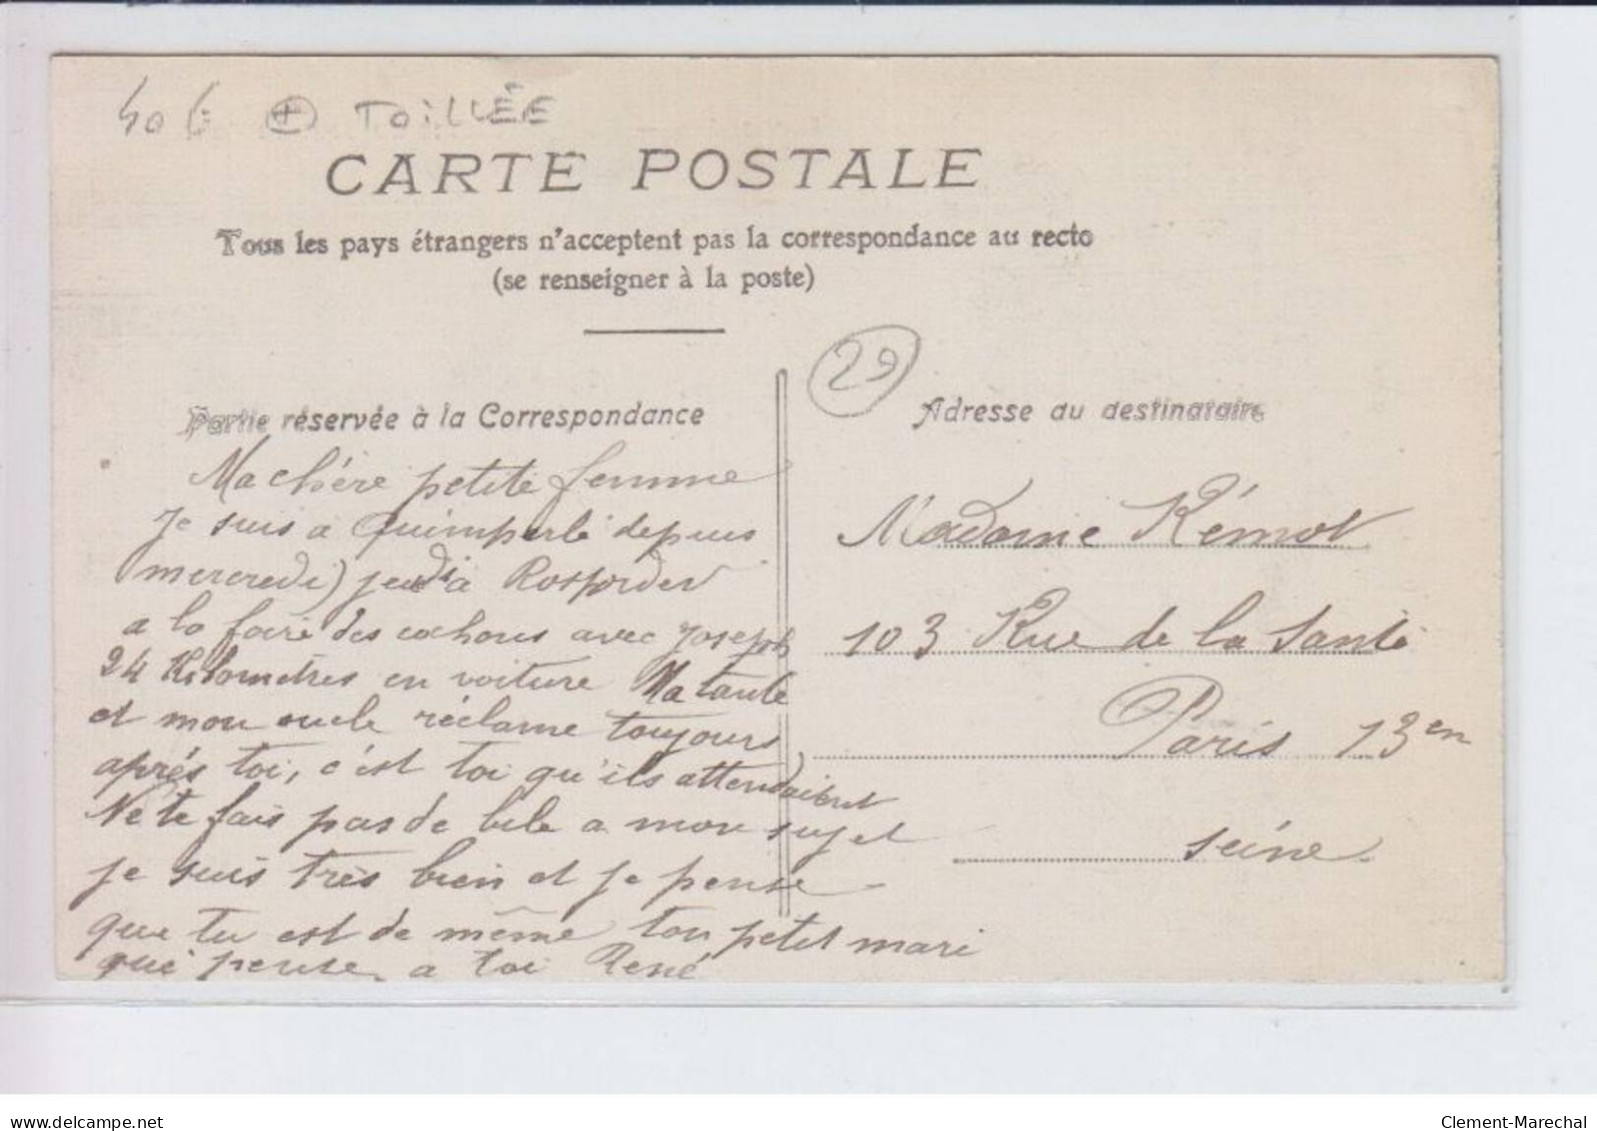 40 € + TOILLÉE
CARTE POSTALE
Tous les pays étrangers n'acceptent pas la correspondance au recto
(se renseigner à la poste)
29
Partie réservée à la Correspondance
Ma chère petite femme
Je suis a Quimperlé depuis
mercredi) jeudi a Rosporden
a la foire des cochons avec Joseph
24 Kilomètres en voiture Ma tante
et mon oncle réclame toujours
après toi, c'est toi qu'ils attendaient
Ne te fais pas de bile a mon sujet
je suis très bien et je pense
que tu est de même ton petit mari
qui pense a toi René
Adresse du destinataire
Madame Rémot
103 Rue de la Santé
Paris 13en
Seine.
delcampe.net
Clement-Marechal